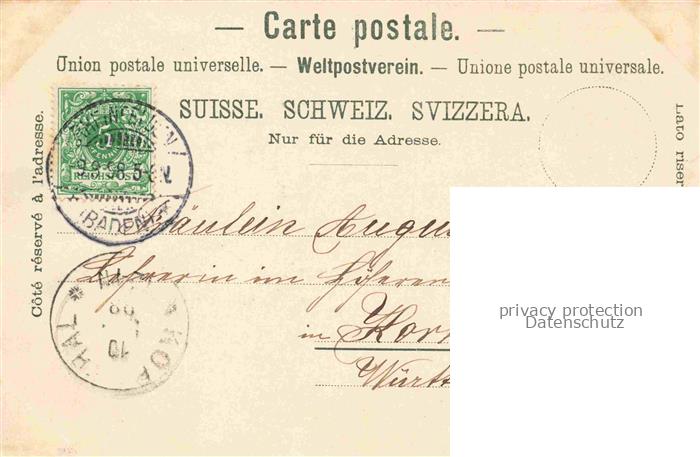 — Carte postale. —
Union postale universelle. — Weltpostverein. — Unione postale universale.
SUISSE. SCHWEIZ. SVIZZERA.
Nur für die Adresse.
Côté réservé à l'adresse.
Lato riser
5
REICHSPOST
RHEINFELDEN
9.8.98.5-6N
(BADEN)
Fräulein Augus
Lehrerin im
in Korn
Württ
10
98
privacy protection
Datenschutz